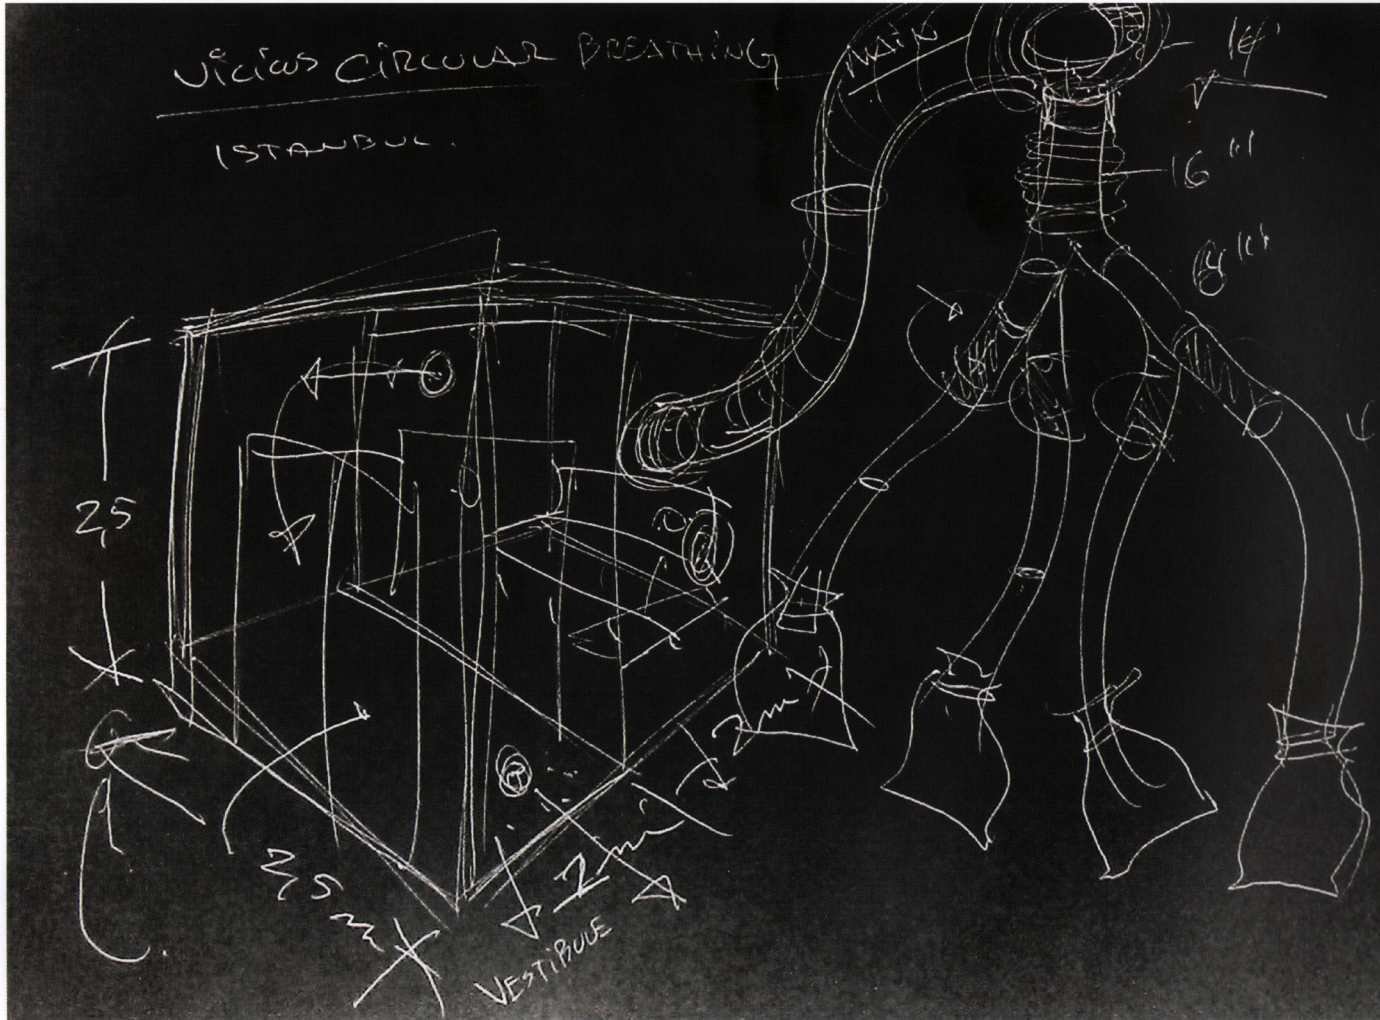 Vicious CIRCULAR BREATHING
ISTANBUL.
MAIN
16"
8"
2,5
2,5 m
2 m
2 m
VESTIBULE